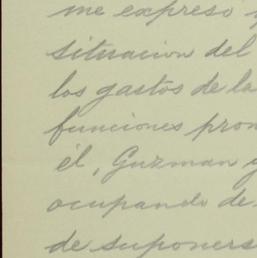 me expreso
situacion del
los gastos de la
funciones pron
él, Guzman y
ocupando de
de suponers